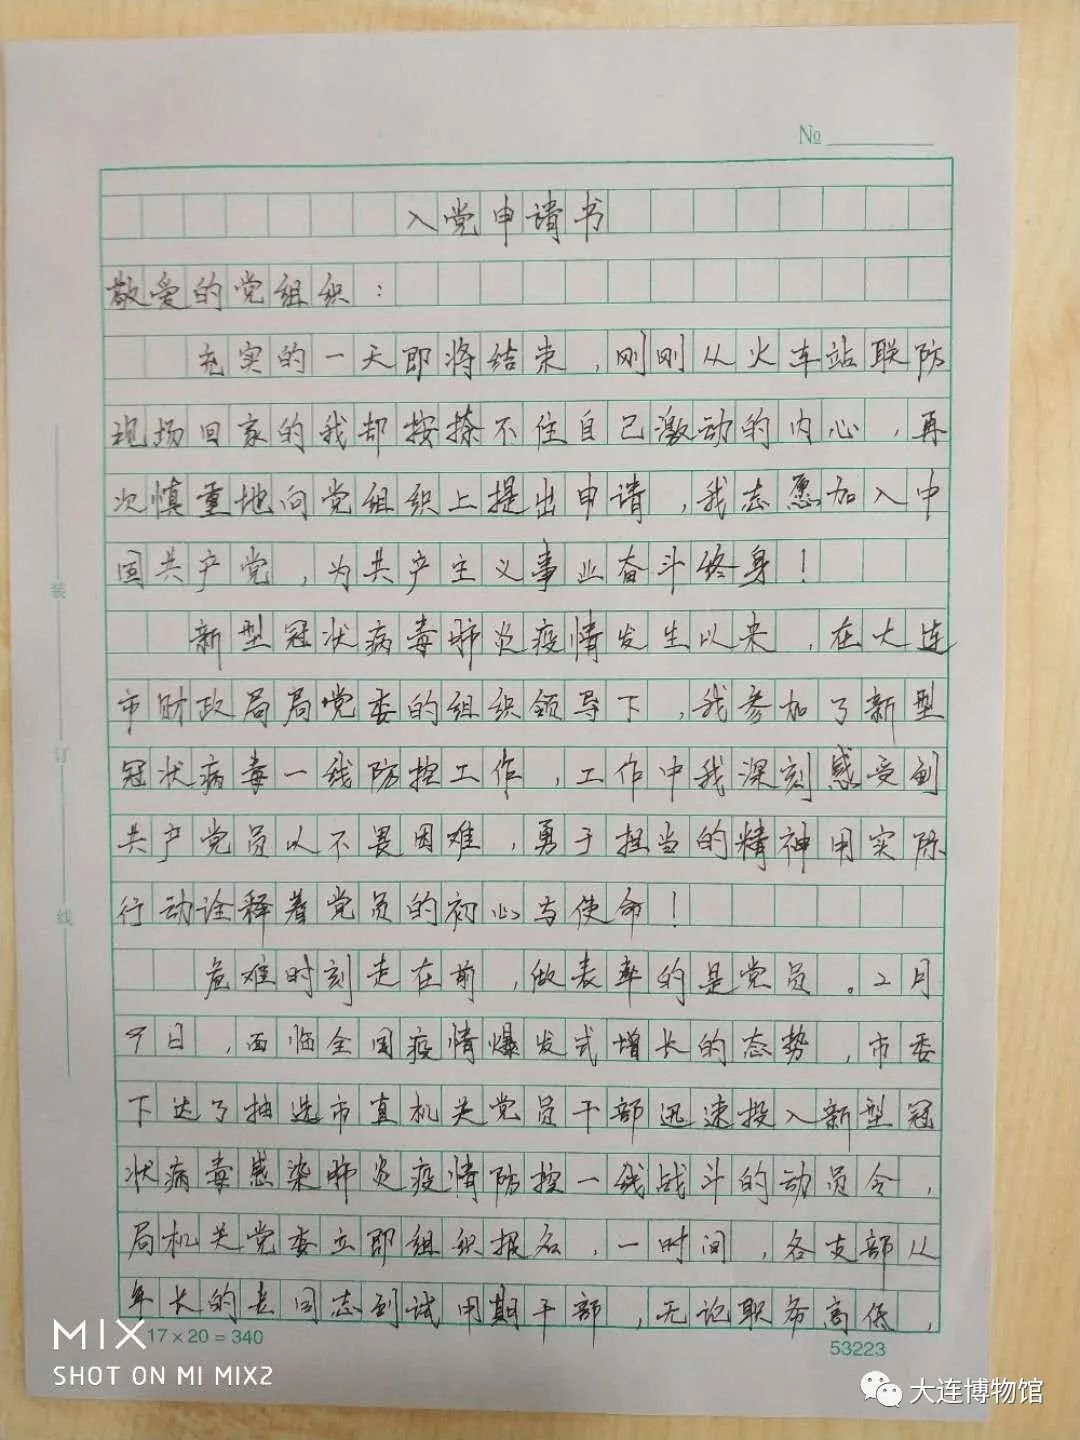 №
入党申请书
敬爱的党组织：
充实的一天即将结束，刚刚从火车站联防
现场回家的我却按捺不住自己激动的内心，再
次慎重地向党组织上提出申请，我志愿加入中
国共产党，为共产主义事业奋斗终身！
新型冠状病毒肺炎疫情发生以来，在大连
市财政局局党委的组织领导下，我参加了新型
冠状病毒一线防控工作，工作中我深刻感受到
共产党员以不畏困难，勇于担当的精神用实际
行动诠释着党员的初心与使命！
危难时刻走在前，做表率的是党员。2月
9日，面临全国疫情爆发式增长的态势，市委
下达了抽选市直机关党员干部迅速投入新型冠
状病毒感染肺炎疫情防控一线战斗的动员令，
局机关党委立即组织报名，一时间，各支部从
年长的老同志到试用期干部，无论职务高低，
装
订
线
17×20=340
53223
MIX
SHOT ON MI MIX2
大连博物馆